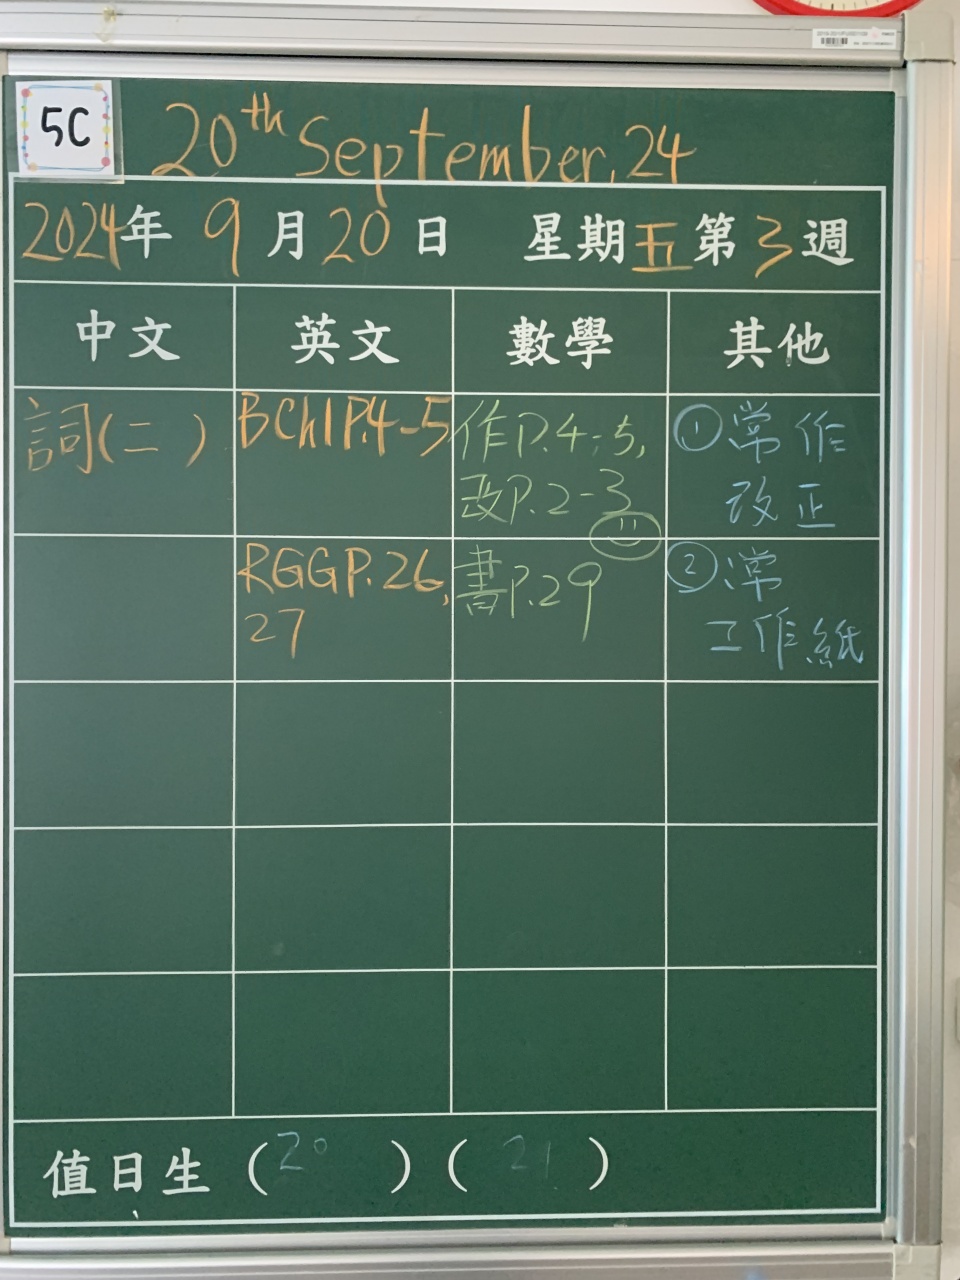 5C
20th September, 24
2024年 9月20日 星期五第3週
中文 英文 數學 其他
詞(二)
BCh1P.4-5
作P.4-5,
改P.2-3
①常作
改正
RGGP.26,
27
書P.29
②常
工作紙
值日生 (20)(21)